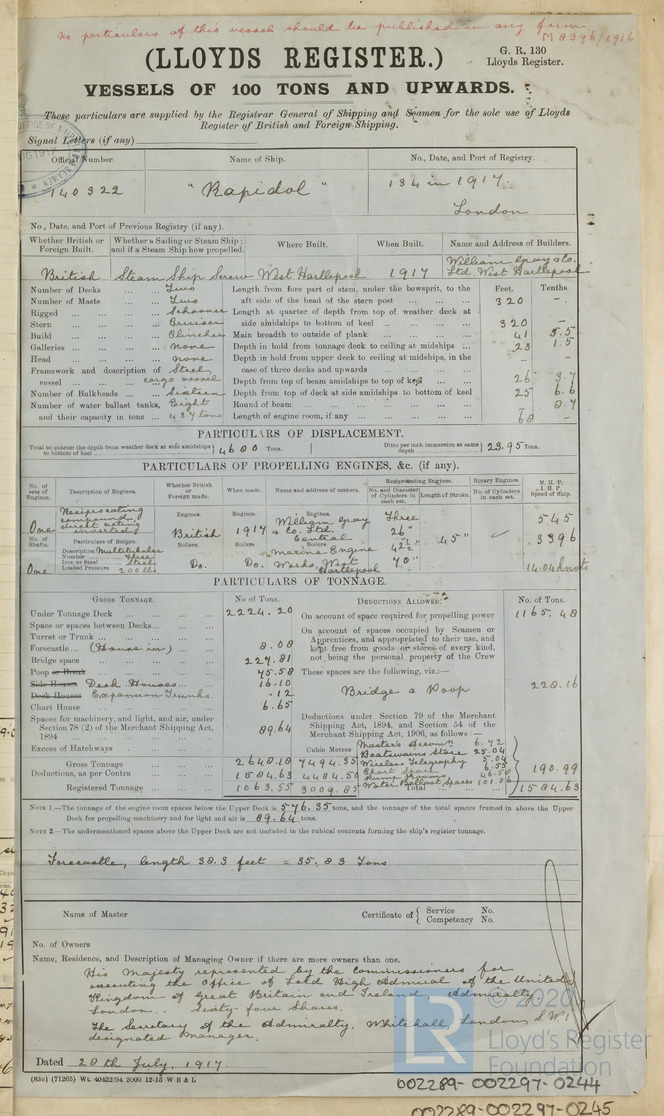 No particulars of this vessel should be published in any form
M 8396/1916
(LLOYDS REGISTER.)
G. R. 130
Lloyds Register.
VESSELS OF 100 TONS AND UPWARDS.
These particulars are supplied by the Registrar General of Shipping and Seamen for the sole use of Lloyds
Register of British and Foreign Shipping.
Signal Letters (if any)
Official Number. Name of Ship. No., Date, and Port of Registry.
140322 "Rapidol" 134 in 1917
London
No., Date, and Port of Previous Registry (if any).
Whether British or Foreign Built. Whether a Sailing or Steam Ship; and if a Steam Ship how propelled. Where Built. When Built. Name and Address of Builders.
British Steam Ship Screw West Hartlepool 1917 William Gray & Co. Ltd. West Hartlepool
Number of Decks ... ... Two
Number of Masts ... ... Two
Rigged ... ... Schooner
Stern ... ... Cruiser
Build ... ... Clincher
Galleries ... ... none
Head ... ... none
Framework and description of vessel ... Steel, cargo vessel
Number of Bulkheads ... Sixteen
Number of water ballast tanks, Eight
and their capacity in tons ... 437 tons
Feet. Tenths.
Length from fore part of stem, under the bowsprit, to the
aft side of the head of the stern post ... 320 –
Length at quarter of depth from top of weather deck at
side amidships to bottom of keel ... 320 –
Main breadth to outside of plank ... 41 5.5
Depth in hold from tonnage deck to ceiling at midships ... 23 1.5
Depth in hold from upper deck to ceiling at midships, in the
case of three decks and upwards ... – –
Depth from top of beam amidships to top of keel ... 26 3.7
Depth from top of deck at side amidships to bottom of keel 25 6.6
Round of beam ... 8.7
Length of engine room, if any ... 68 –
PARTICULARS OF DISPLACEMENT.
Total to quarter the depth from weather deck at side amidships to bottom of keel 4680 Tons.
Ditto per inch immersion at same depth 23.95 Tons.
PARTICULARS OF PROPELLING ENGINES, &c. (if any).
No. of sets of Engines. Description of Engines. Whether British or Foreign made. When made. Name and address of makers. Reciprocating Engines. Rotary Engines. N. H. P.
No. and Diameter of Cylinders in each set. Length of Stroke. No. of Cylinders in each set. I. H. P. Speed of Ship.
One Reciprocating compound direct acting inverted
Engines. British 1917 William Gray & Co. Ltd. Central Marine Engine Works, West Hartlepool
Three 26" 42½" 70" 45" 545 3396 14.04 knots
No. of Shafts. Particulars of Boilers.
Description Multitubular
Number Three
Iron or Steel Steel
Loaded Pressure 200 lbs
One Boilers. Do. Boilers. Do.
PARTICULARS OF TONNAGE.
GROSS TONNAGE. No of Tons. DEDUCTIONS ALLOWED. No. of Tons.
Under Tonnage Deck ... 2224.20
Space or spaces between Decks...
Turret or Trunk ...
Forecastle... (House in) 8.08
Bridge space ... 227.81
Poop or Break ... 45.58
Side Houses Deck Houses 16.10
Deck Houses Expansion Trunks .12
Chart House ... 6.65
Spaces for machinery, and light, and air, under
Section 78 (2) of the Merchant Shipping Act,
1894 ... 89.64
Excess of Hatchways ...
Cubic Metres
Gross Tonnage 2648.18 7494.35
Deductions, as per Contra 1584.63 4484.50
Registered Tonnage 1063.55 3009.85
On account of space required for propelling power 1165.48
On account of spaces occupied by Seamen or
Apprentices, and appropriated to their use, and
kept free from goods or stores of every kind,
not being the personal property of the Crew
These spaces are the following, viz.:—
Bridge & Poop 228.16
Deductions under Section 79 of the Merchant
Shipping Act, 1894, and Section 54 of the
Merchant Shipping Act, 1906, as follows:—
Master's Accom'n 6.72
Boatswains Store 25.04
Wireless Telegraphy 5.04
Chart Space 6.55
Pump Rooms 46.58
Water Ballast Spaces 101.06
190.99
Total ... 1584.63
NOTE 1.—The tonnage of the engine room spaces below the Upper Deck is 576.35 tons, and the tonnage of the total spaces framed in above the Upper
Deck for propelling machinery and for light and air is 89.64 tons.
NOTE 2.—The undermentioned spaces above the Upper Deck are not included in the cubical contents forming the ship's register tonnage.
Forecastle, length 38.3 feet = 35.83 Tons
Name of Master Certificate of { Service No.
Competency No.
No. of Owners
Name, Residence, and Description of Managing Owner if there are more owners than one.
His Majesty represented by the Commissioners for
executing the Office of Lord High Admiral of the United
Kingdom of Great Britain and Ireland Admiralty
London.. Sixty-four Shares.
The Secretary of the Admiralty, Whitehall, London, S.W.1
designated manager.
Dated 28th July, 1917.
(83o) (71265) Wt. 40422/94 2000 12-15 W B & L
© 2020
LR
Lloyd's Register
Foundation
002289-002297-0244
002289-002297-0245